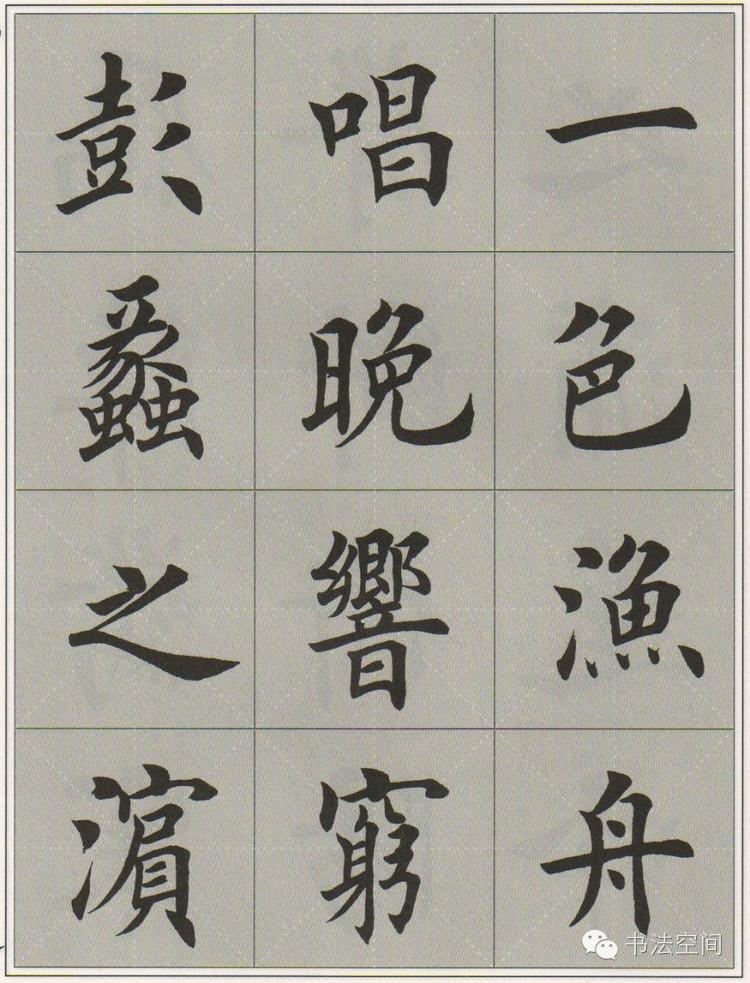 一色漁舟
唱晚響窮
彭蠡之濵
书法空间